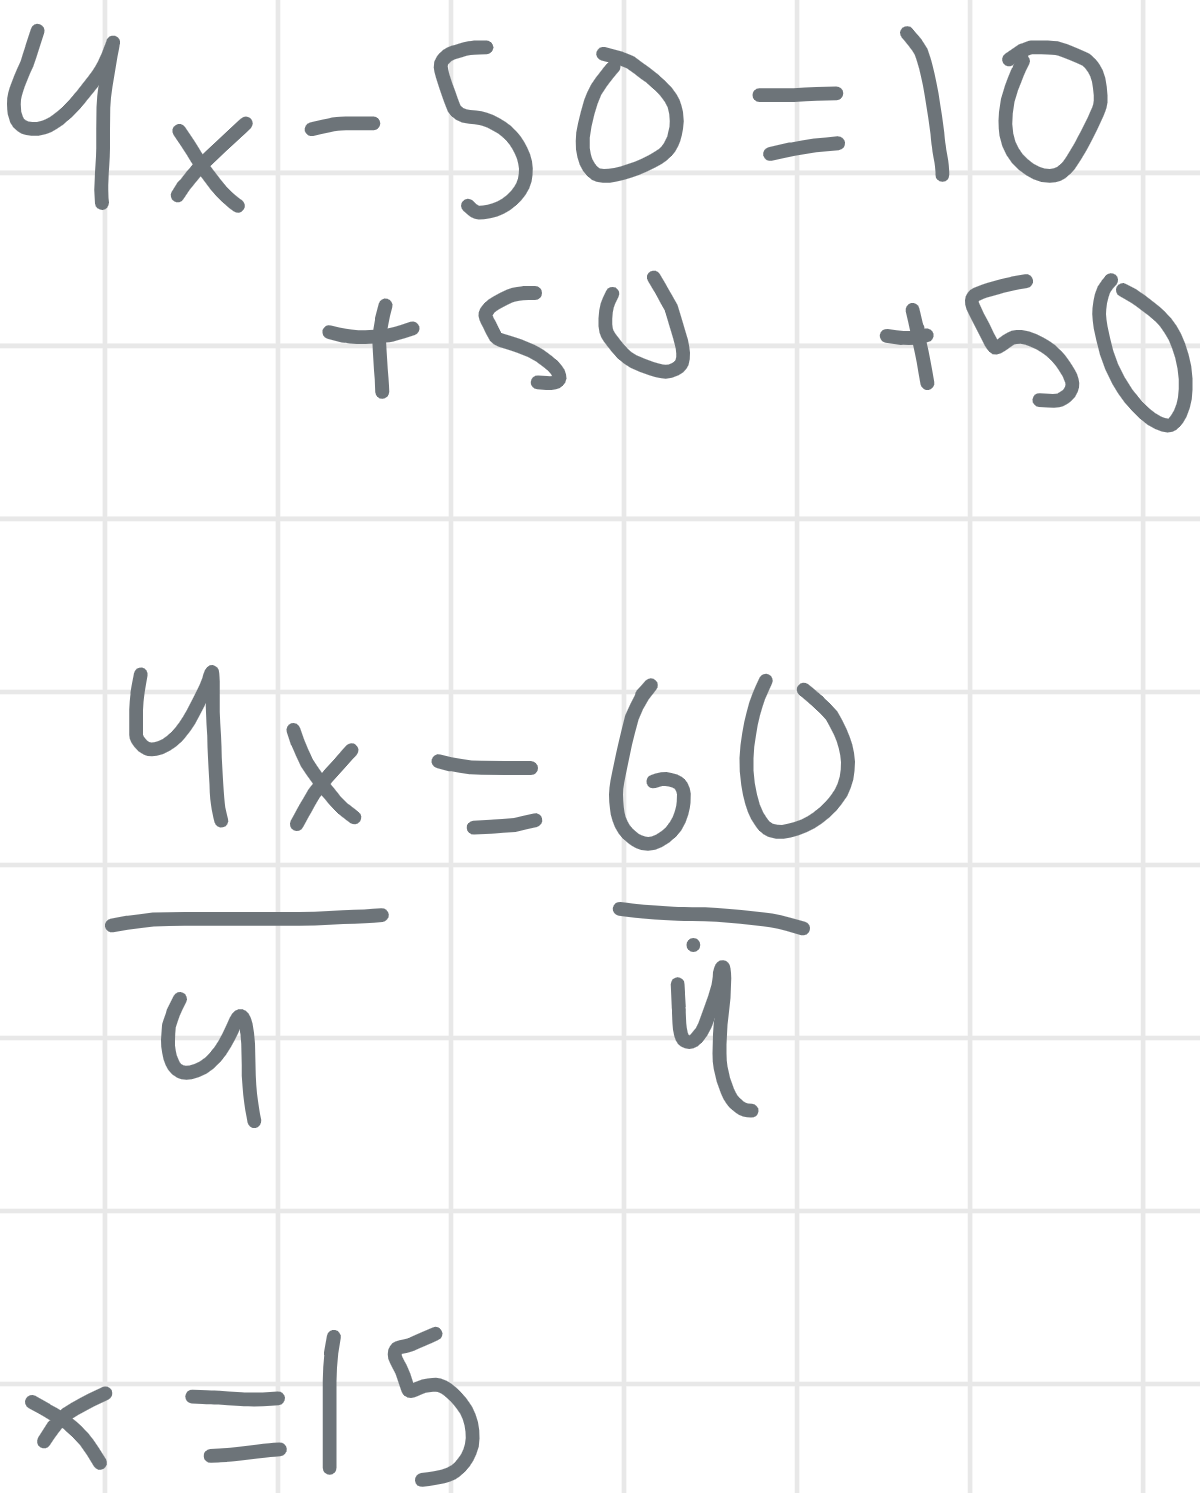 4x - 50 = 10
+ 50 + 50
4x = 60
4 4
x = 15